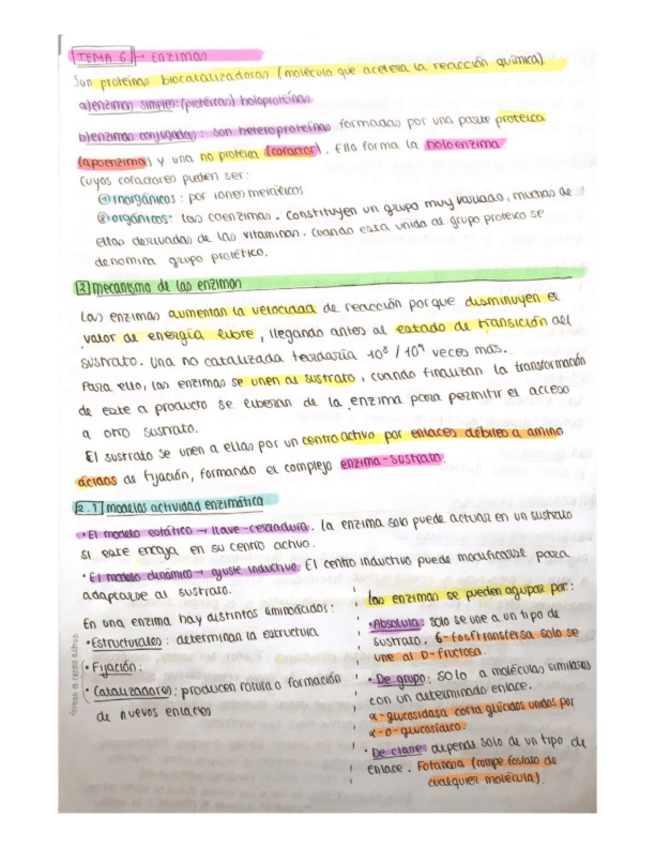 TEMA 6 → ENZIMAS
Son proteínas biocatalizadoras (molécula que acelera la reacción química).
a) enzimas simples: (proteicas) holoproteínas
b) enzimas conjugadas: son heteroproteínas formadas por una parte proteica
(apoenzima) y una no proteica (cofactor). Ello forma la holoenzima
Cuyos cofactores pueden ser:
① inorgánicos: por iones metálicos
② orgánicos: las coenzimas. Constituyen un grupo muy variado, muchas de
ellas derivadas de las vitaminas. Cuando esta unida al grupo proteico se
denomina grupo protético.
2 mecanismo de las enzimas
Las enzimas aumentan la velocidad de reacción porque disminuyen el
valor de energía libre, llegando antes al estado de transición del
sustrato. Una no catalizada tardaría 10⁸ / 10⁹ veces más.
Para ello, las enzimas se unen al sustrato, cuando finalizan la transformación
de este a producto se liberan de la enzima para permitir el acceso
a otro sustrato.
El sustrato se unen a ellas por un centro activo por enlaces débiles a amino
ácidos de fijación, formando el complejo enzima-sustrato.
2.1 modelos actividad enzimática
• El modelo estático → llave-cerradura. La enzima solo puede actuar en un sustrato
si este encaja en su centro activo.
• El modelo dinámico → ajuste inductivo. El centro inductivo puede modificarse para
adaptarse al sustrato.
En una enzima hay distintos aminoácidos:
• Estructurales: determinan la estructura
• Fijación:
• Catalizadores: producen rotura o formación
de nuevos enlaces
forman el centro activo
Las enzimas se pueden agupar por:
• Absoluta: solo se une a un tipo de
sustrato. 6-fosftransfersa solo se
une al D-fructosa.
• De grupo: solo a moléculas similares
con un determinado enlace.
α-glucosidasa corta glúcidos unidos por
α-o-glucosídico.
• De clase: depende solo de un tipo de
enlace. Fotanasa (rompe fosfato de
cualquier molécula).